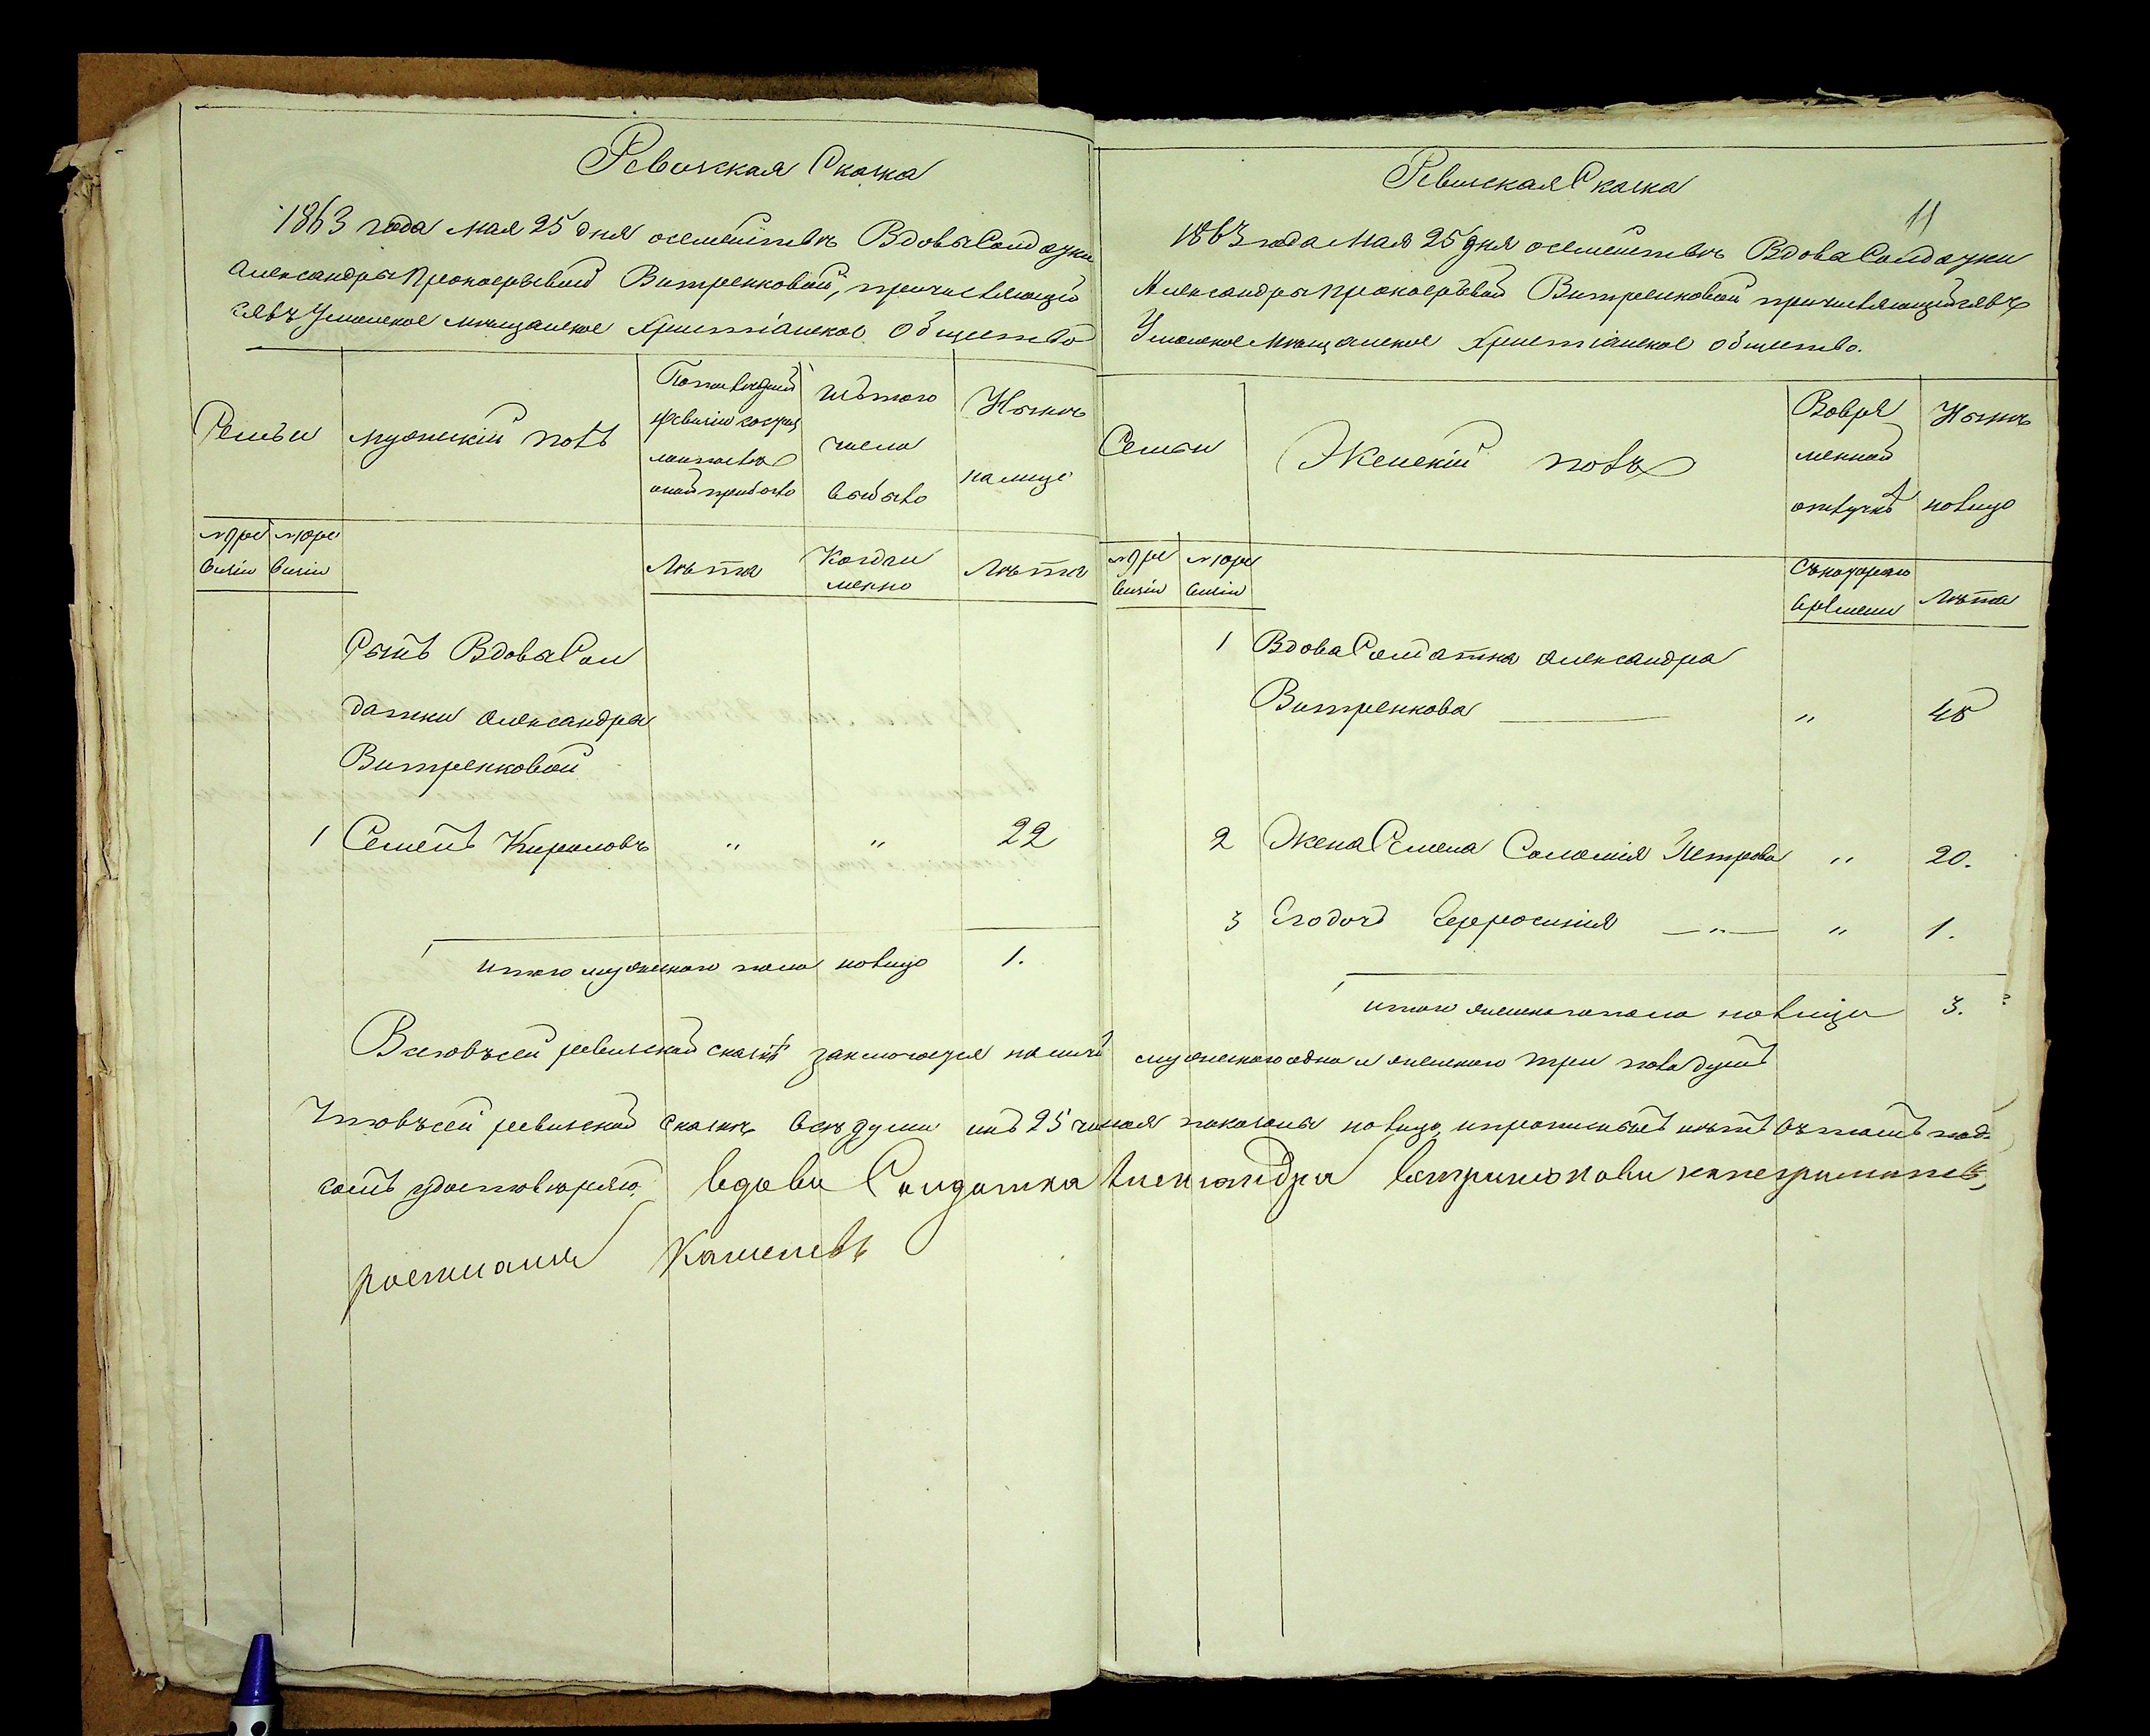 Ревизская Сказка
1863 года мая 25 дня осемействѣ Вдовы Солдатки
Александры Прокофьевой Витренковой, причисляющей
ся въ Уманское мѣщанское христіанское общество
Семьи
мужескій полъ
По последней
ревизіи состоя
ло и после
оной прибыло
Изъ того
числа
выбыло
Нынѣ
на лице
№ 9 ре
визіи
№ 10 ре
визіи
Лѣта
Когда и
менно
Лѣта
Сынъ Вдовы Сол
датки Александры
Витренковой
1 Семенъ Кириловъ " " 22
итого мужескаго пола налицо 1.
Ревизская Сказка
11
1863 года Мая 25 дня осемействѣ Вдова Солдатки
Александры Прокофьевой Витренковой причисляющейся въ
Уманское Мѣщанское христіанское общество.
Семьи
Женскій полъ
Во вре
менной
отлучкѣ
Нынѣ
налицо
№ 9 ре
визіи
№ 10 ре
визіи
Съ котораго
времени
Лѣта
1 Вдова Солдатка Александра
Витренкова " 48
2 Жена Семена Соломія Петрова " 20.
3 Егодочь Евфросинія — " — " 1.
итого женскаго пола налицо 3.
Всего въ сей ревизской сказкѣ заключается наличн мужескаго одна и женскаго три пола душъ
Что въ сей ревизской сказкѣ всѣ души по 25 число мая показаны налицо, и прописныхъ нѣтъ въ томъ под
солъ удостоверяю вдова Солдатка Александра
росписалъ